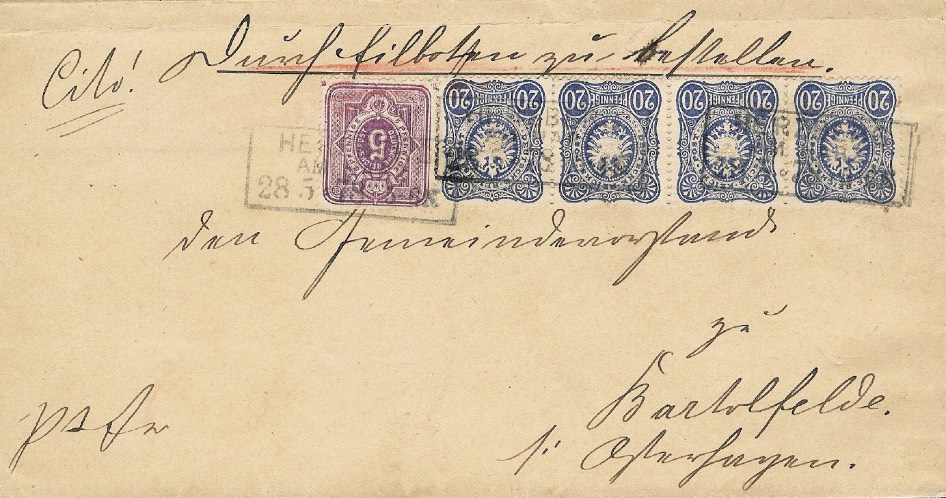 Cito! Durch Eilboten zu bestellen.
20 20 20 20
PFENNIG PFENNIG PFENNIG PFENNIG
5
HE
28 5
den Gemeindevorstand
zu
Bartolfelde.
b/ Osterhagen.